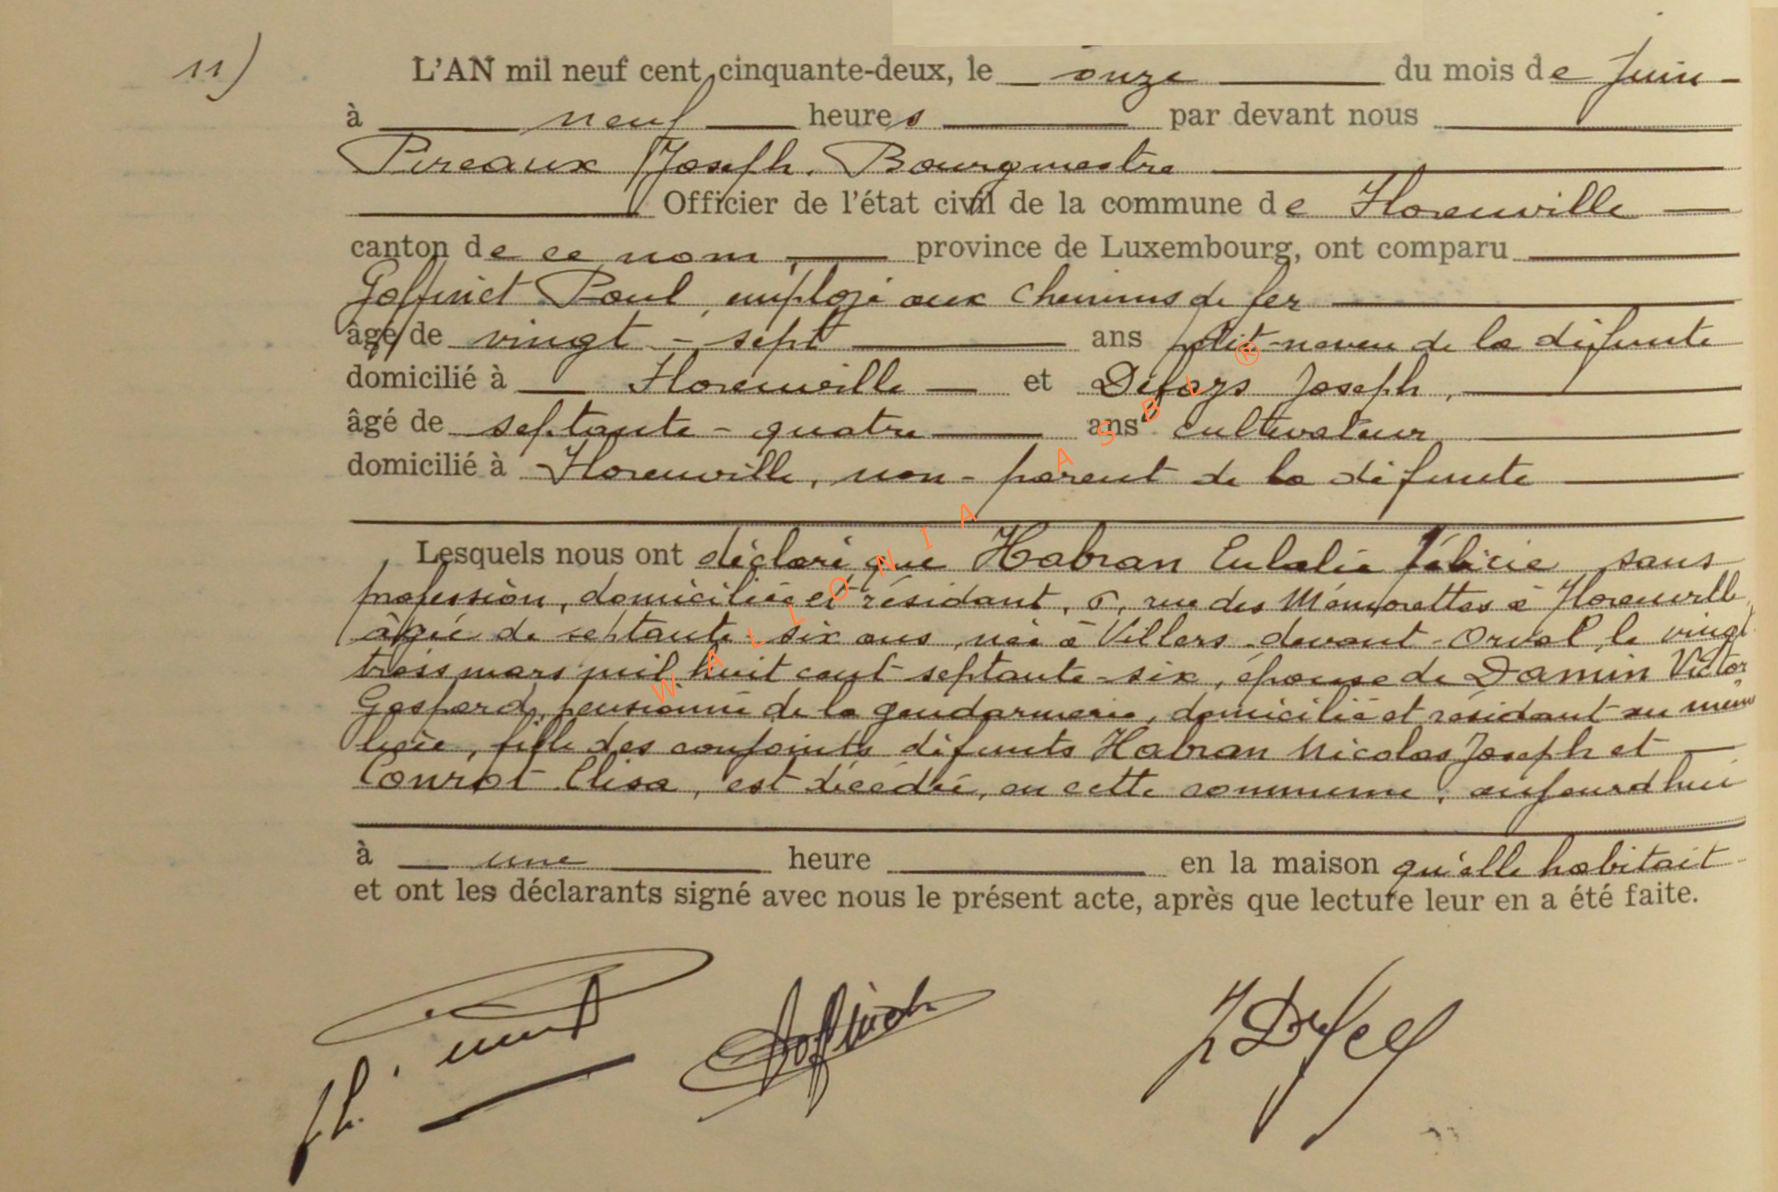 11)
L'AN mil neuf cent cinquante-deux, le onze du mois de Juin
à neuf heures par devant nous
Pireaux Joseph. Bourgmestre
Officier de l'état civil de la commune de Florenville
canton de ce nom, province de Luxembourg, ont comparu
Goffinet Paul, employé aux chemins de fer
âgé de vingt-sept ans petit-neveu de la défunte
domicilié à Florenville et Défoys Joseph,
âgé de septante-quatre ans cultivateur
domicilié à Florenville, non-parent de la défunte
Lesquels nous ont déclaré que Habran Eulalie Félicie, sans
profession, domiciliée et résidant, 6, rue des à Florenville,
âgée de septante-six ans, née à Villers-devant-Orval, le vingt
trois mars mil huit cent septante-six, épouse de Damin Victor
Gaspard, pensionné de la gendarmerie, domicilié et résidant au même
lieu, fille des conjoints défunts Habran Nicolas Joseph et
Conrot Elisa, est décédée, en cette commune, aujourd'hui
à une heure en la maison qu'elle habitait
et ont les déclarants signé avec nous le présent acte, après que lecture leur en a été faite.
Goffinet
WALLONIA ASBL ®